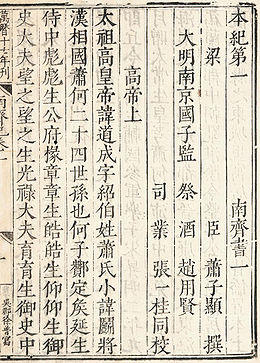 本紀第一 南齊書一
梁 臣 蕭子顯 撰
大明南京國子監 祭 酒 趙用賢
司 業 張一桂同校
高帝上
太祖高皇帝諱道成字紹伯姓蕭氏小諱鬬將
漢相國蕭何二十四世孫也何子酇定矦延生
侍中彪彪生公府掾章章生皓皓生仰仰生御
史大夫望之望之生光祿大夫育育生御史中
萬曆十六年刊